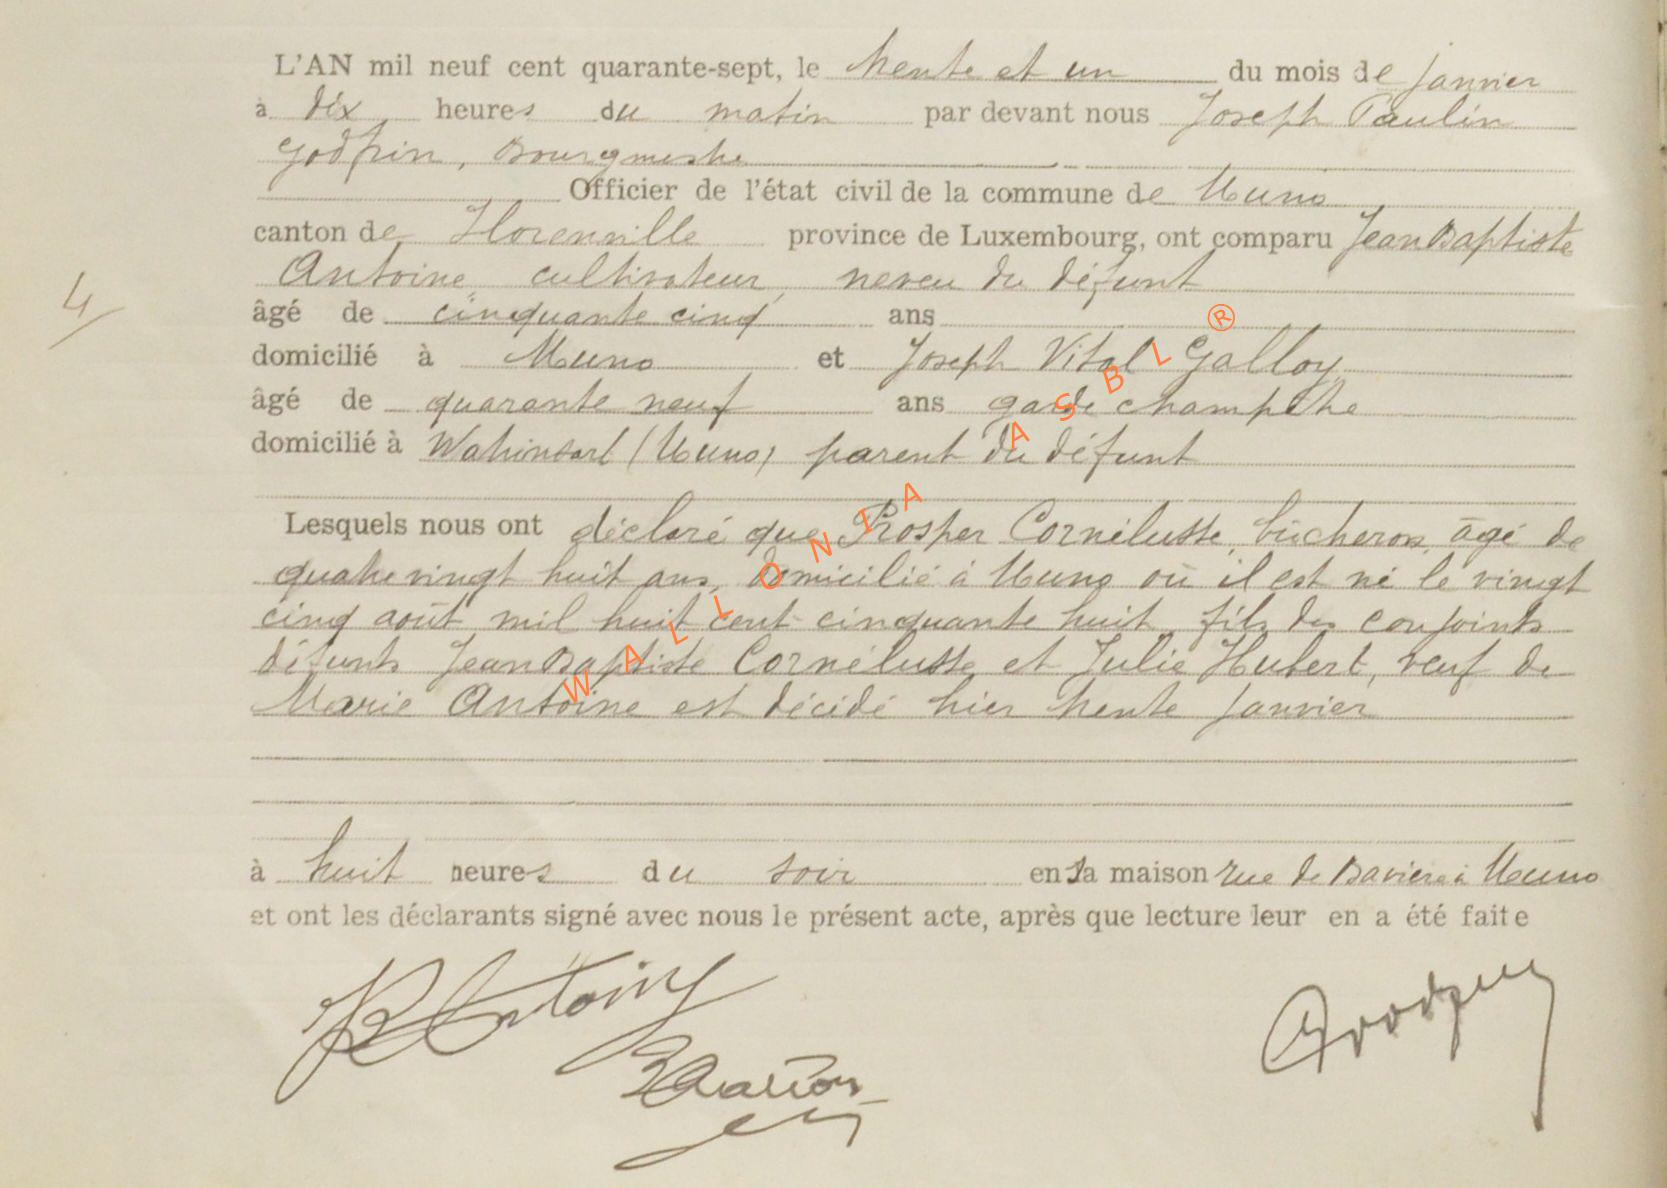 L'AN mil neuf cent quarante-sept, le trente et un du mois de janvier
à dix heures du matin par devant nous Joseph Paulin
Godfrin, Bourgmestre
Officier de l'état civil de la commune de Muno
canton de Florenville province de Luxembourg, ont comparu Jean Baptiste
Antoine cultivateur, neveu du défunt
4
âgé de cinquante cinq ans
domicilié à Muno et Joseph Vital Galloy
âgé de quarante neuf ans garde champêtre
domicilié à Watrinsart (Muno) parent du défunt
Lesquels nous ont déclaré que Prosper Cornélusse, bûcheron, âgé de
quatre vingt huit ans, domicilié à Muno où il est né le vingt
cinq août mil huit cent cinquante huit, fils des conjoints
défunts Jean Baptiste Cornélusse et Julie Hubert, veuf de
Marie Antoine est décédé hier trente janvier
à huit heures du soir en sa maison rue de Bavière à Muno
et ont les déclarants signé avec nous le présent acte, après que lecture leur en a été faite
JB Antoine
Godfrin
WALLONIA ASBL ®